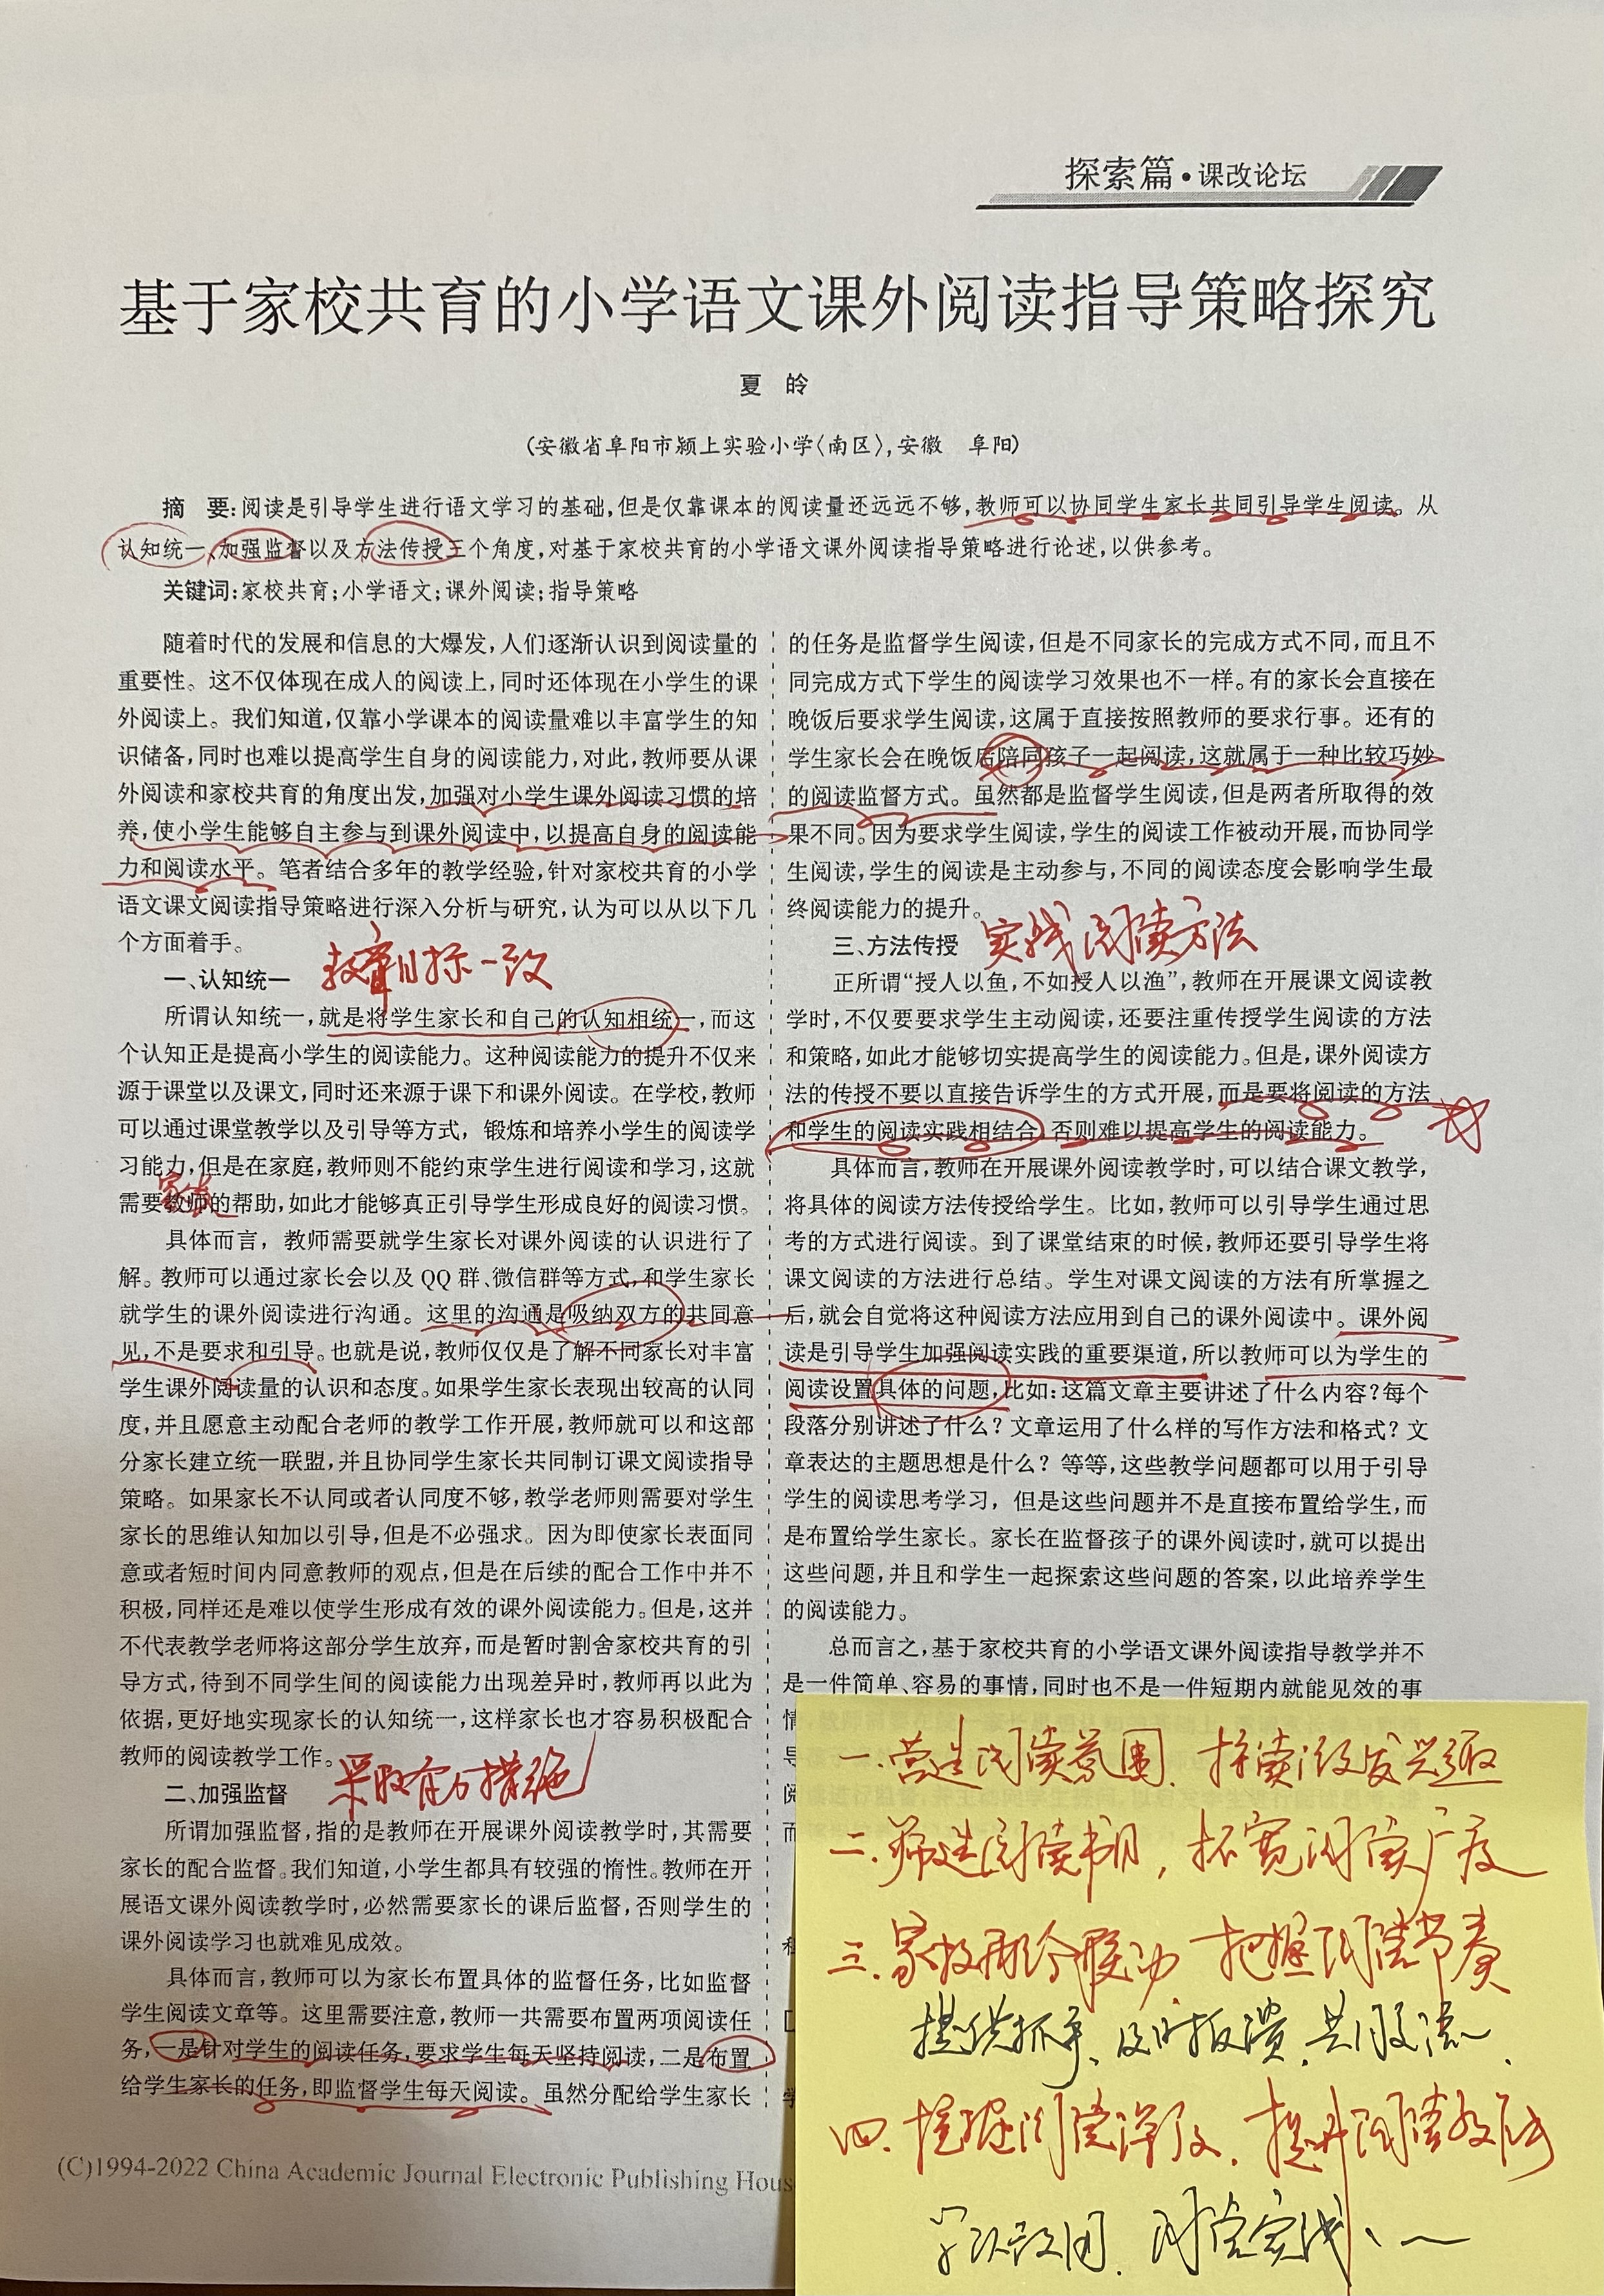 探索篇·课改论坛
基于家校共育的小学语文课外阅读指导策略探究
夏 皊
(安徽省阜阳市颍上实验小学〈南区〉,安徽 阜阳)
摘 要:阅读是引导学生进行语文学习的基础,但是仅靠课本的阅读量还远远不够,教师可以协同学生家长共同引导学生阅读。从
认知统一、加强监督以及方法传授三个角度,对基于家校共育的小学语文课外阅读指导策略进行论述,以供参考。
关键词:家校共育;小学语文;课外阅读;指导策略
随着时代的发展和信息的大爆发,人们逐渐认识到阅读量的
重要性。这不仅体现在成人的阅读上,同时还体现在小学生的课
外阅读上。我们知道,仅靠小学课本的阅读量难以丰富学生的知
识储备,同时也难以提高学生自身的阅读能力,对此,教师要从课
外阅读和家校共育的角度出发,加强对小学生课外阅读习惯的培
养,使小学生能够自主参与到课外阅读中,以提高自身的阅读能
力和阅读水平。笔者结合多年的教学经验,针对家校共育的小学
语文课文阅读指导策略进行深入分析与研究,认为可以从以下几
个方面着手。
一、认知统一 教育目标一致
所谓认知统一,就是将学生家长和自己的认知相统一,而这
个认知正是提高小学生的阅读能力。这种阅读能力的提升不仅来
源于课堂以及课文,同时还来源于课下和课外阅读。在学校,教师
可以通过课堂教学以及引导等方式,锻炼和培养小学生的阅读学
习能力,但是在家庭,教师则不能约束学生进行阅读和学习,这就
家长
需要教师的帮助,如此才能够真正引导学生形成良好的阅读习惯。
具体而言,教师需要就学生家长对课外阅读的认识进行了
解。教师可以通过家长会以及 QQ 群、微信群等方式,和学生家长
就学生的课外阅读进行沟通。这里的沟通是吸纳双方的共同意
见,不是要求和引导。也就是说,教师仅仅是了解不同家长对丰富
学生课外阅读量的认识和态度。如果学生家长表现出较高的认同
度,并且愿意主动配合老师的教学工作开展,教师就可以和这部
分家长建立统一联盟,并且协同学生家长共同制订课文阅读指导
策略。如果家长不认同或者认同度不够,教学老师则需要对学生
家长的思维认知加以引导,但是不必强求。因为即使家长表面同
意或者短时间内同意教师的观点,但是在后续的配合工作中并不
积极,同样还是难以使学生形成有效的课外阅读能力。但是,这并
不代表教学老师将这部分学生放弃,而是暂时割舍家校共育的引
导方式,待到不同学生间的阅读能力出现差异时,教师再以此为
依据,更好地实现家长的认知统一,这样家长也才容易积极配合
教师的阅读教学工作。
二、加强监督 采取有力措施
所谓加强监督,指的是教师在开展课外阅读教学时,其需要
家长的配合监督。我们知道,小学生都具有较强的惰性。教师在开
展语文课外阅读教学时,必然需要家长的课后监督,否则学生的
课外阅读学习也就难见成效。
具体而言,教师可以为家长布置具体的监督任务,比如监督
学生阅读文章等。这里需要注意,教师一共需要布置两项阅读任
务,一是针对学生的阅读任务,要求学生每天坚持阅读,二是布置
给学生家长的任务,即监督学生每天阅读。虽然分配给学生家长
的任务是监督学生阅读,但是不同家长的完成方式不同,而且不
同完成方式下学生的阅读学习效果也不一样。有的家长会直接在
晚饭后要求学生阅读,这属于直接按照教师的要求行事。还有的
学生家长会在晚饭后陪同孩子一起阅读,这就属于一种比较巧妙
的阅读监督方式。虽然都是监督学生阅读,但是两者所取得的效
果不同。因为要求学生阅读,学生的阅读工作被动开展,而协同学
生阅读,学生的阅读是主动参与,不同的阅读态度会影响学生最
终阅读能力的提升。
三、方法传授 实践阅读方法
正所谓“授人以鱼,不如授人以渔”,教师在开展课文阅读教
学时,不仅要要求学生主动阅读,还要注重传授学生阅读的方法
和策略,如此才能够切实提高学生的阅读能力。但是,课外阅读方
法的传授不要以直接告诉学生的方式开展,而是要将阅读的方法
和学生的阅读实践相结合,否则难以提高学生的阅读能力。
具体而言,教师在开展课外阅读教学时,可以结合课文教学,
将具体的阅读方法传授给学生。比如,教师可以引导学生通过思
考的方式进行阅读。到了课堂结束的时候,教师还要引导学生将
课文阅读的方法进行总结。学生对课文阅读的方法有所掌握之
后,就会自觉将这种阅读方法应用到自己的课外阅读中。课外阅
读是引导学生加强阅读实践的重要渠道,所以教师可以为学生的
阅读设置具体的问题,比如:这篇文章主要讲述了什么内容?每个
段落分别讲述了什么?文章运用了什么样的写作方法和格式?文
章表达的主题思想是什么?等等,这些教学问题都可以用于引导
学生的阅读思考学习,但是这些问题并不是直接布置给学生,而
是布置给学生家长。家长在监督孩子的课外阅读时,就可以提出
这些问题,并且和学生一起探索这些问题的答案,以此培养学生
的阅读能力。
总而言之,基于家校共育的小学语文课外阅读指导教学并不
是一件简单、容易的事情,同时也不是一件短期内就能见效的事
情
导
阅
而
一.营造阅读氛围、探索激发兴趣
二.筛选阅读书目,拓宽阅读广度
三.家校配合联动 把握阅读节奏
提供抓手、及时反馈、共同交流、
四.握阅读深度、提升阅读效能
阅读实践、一
(C)1994-2022 China Academic Journal Electronic Publishing Hous